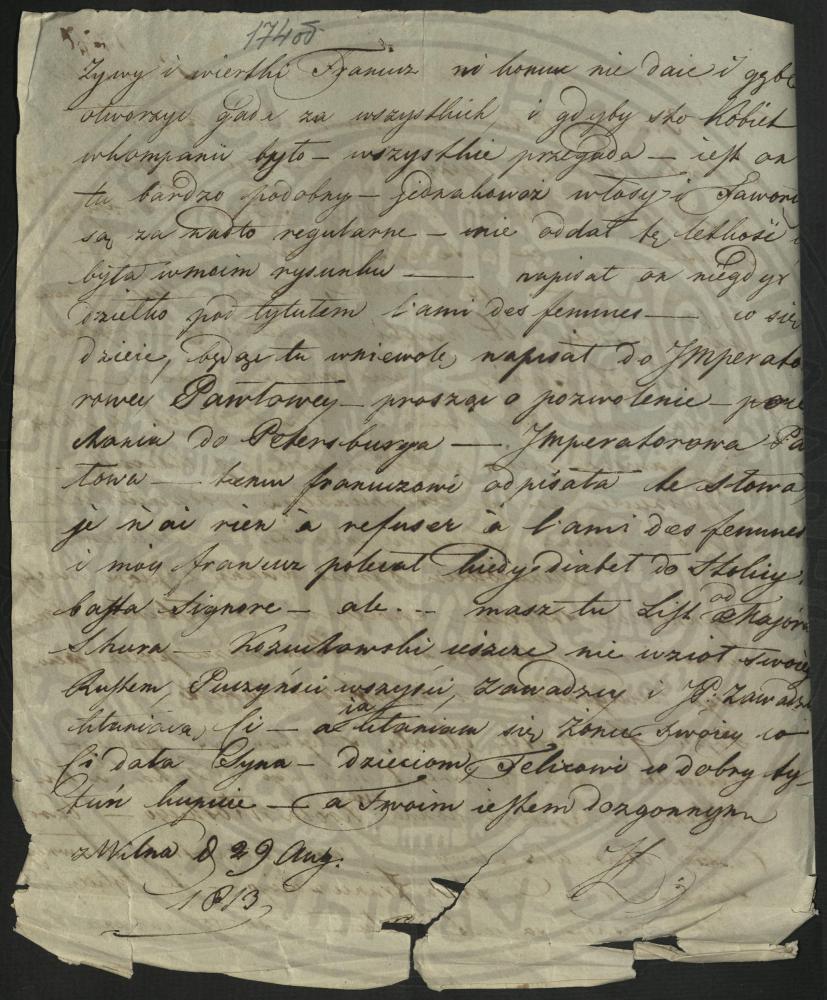 1740
żywy i wierthi Francuz ni komu nie daie i gęby
otworzyć Gada za wszystkich, i gdyby sto Kobiet
wkompanii było — wszystkie przegada — iest on
tu bardzo podobny — jednakowoż włosy i Fawori
są za nadto regularne — nie oddał tę letkość i
była wmoim rysunku — napisał on niegdyś
dziełko pod tytułem l'ami des femmes — co się
dzieie, będąc tu wniewolę, napisał do JMperato
rowey Pawłowey — prosząc o pozwolenie —
do Petersburga — Jmperatorowa Pa
łowa — temu francuzowi odpisała te słowa,
je n'ai rien à refuser à l'ami des femmes
i móy francuz poleciał kiedy diabeł do Stolicy.
basta Signore — ale... masz tu List od Majora
Skura — Kozuchowski ieszcze nie wziół swoiey
Rustem, Puczyńsci wszyscy, Zawadzcy i JP: Zawadz
kłaniaią Ci — a ia kłaniam się Żonie swoiey co
Ci dała Syna — dzieciom, Felixowi co dobry ty-
tuń kupuie — a Twoim iestem dozgonnym
zWilna d 29 Aug.
1813